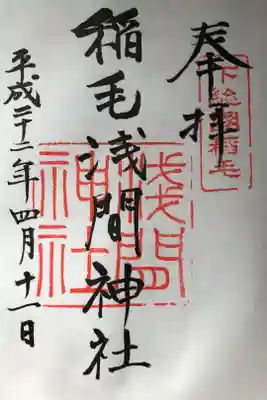 奉拝
下総國稲毛
稲毛浅間神社
淺間神社
平成二十二年四月十一日